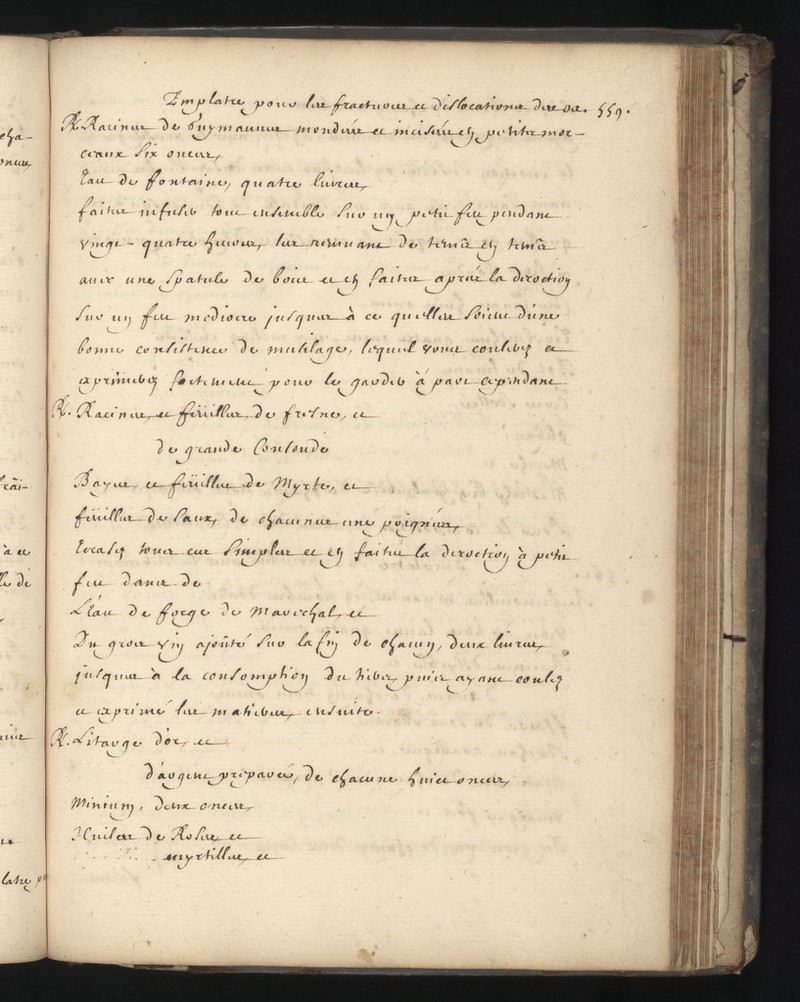 Emplatre pour les fractures et dislocations des os. 559.
℞. Racines De Guymauues mondées et incisées en petits mor-
ceaux six onces,
Eau De fontaine, quatre liures,
faites infuser tout ensemble sur un petit feu pendant
vingt-quatre heures, les remuant De tems en tems
auec une spatule De bois et en faites aprés la decoction
sur un feu mediocre jusques à ce qu'elles soient d'une
bonne consistence De mucilage, lequel vous coulerez et
exprimerez fortement pour le garder à part cependant
℞. Racines et feüilles De fresne, et
De grande Consoude
Bayes, et feüilles De Myrte, et
feüilles De Saux, De chacunes une poignées,
Ecrasez tous ces simples et en faites la decoction à petit
feu dans De
L'Eau De forge De Marechal, et
Du gros vin ajoûté sur la fin De chacun, Deux liures,
jusques à la consomption Du tiers, puis ayant coulez
et exprimé les matieres, ensuite.
℞. Litarge D'or, et
D'argent preparées, De chacune huict onces,
Minium, Deux onces,
Huiles De Roses et
myrtilles, et
cha-
onces,
à et
De
latre